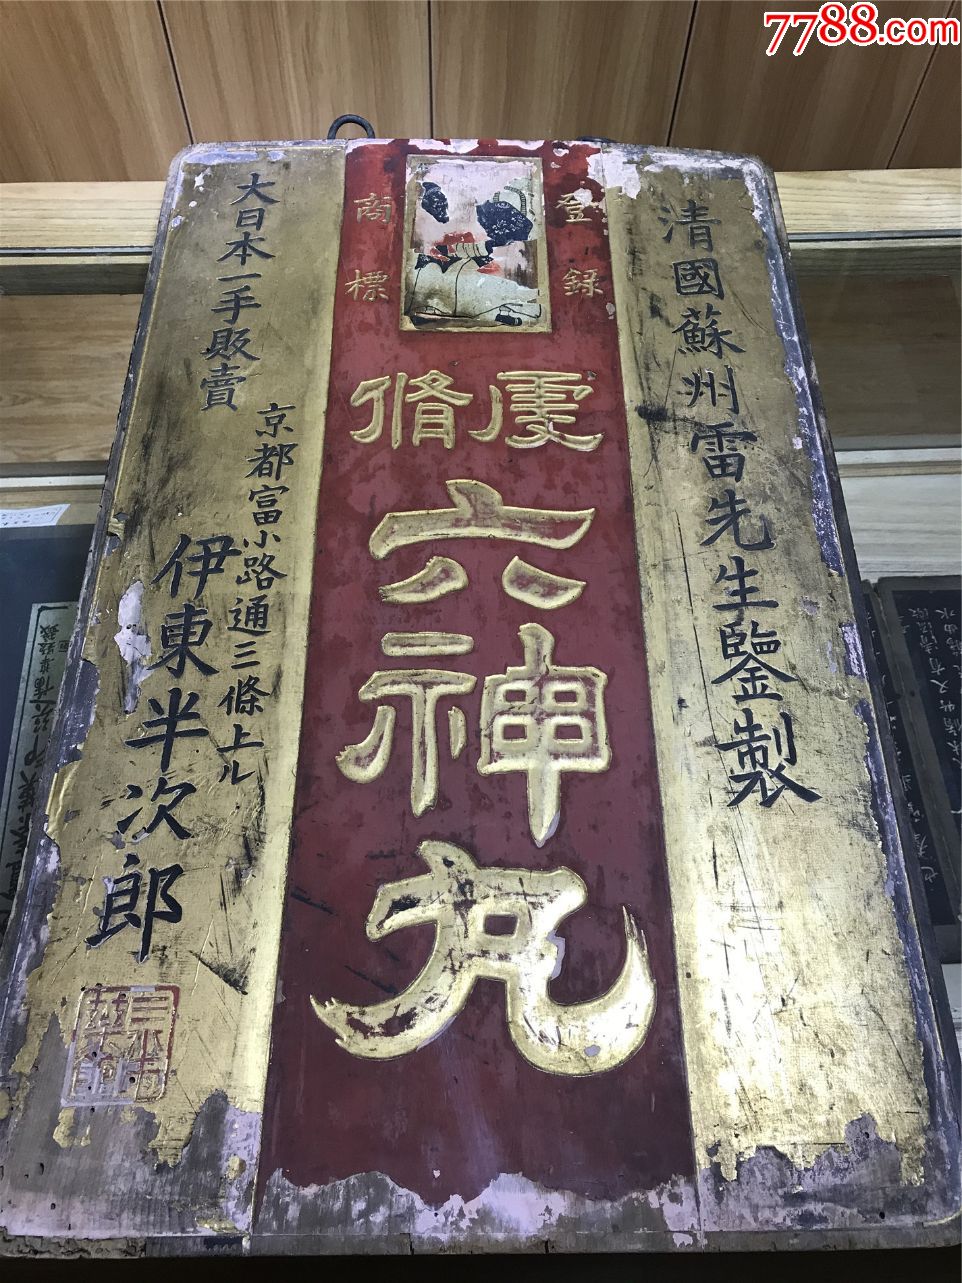 7788.com
登録
商標
清國蘇州雷先生鑒製
虔脩
六神丸
大日本一手販賣
京都富小路通三條上ル
伊東半次郎